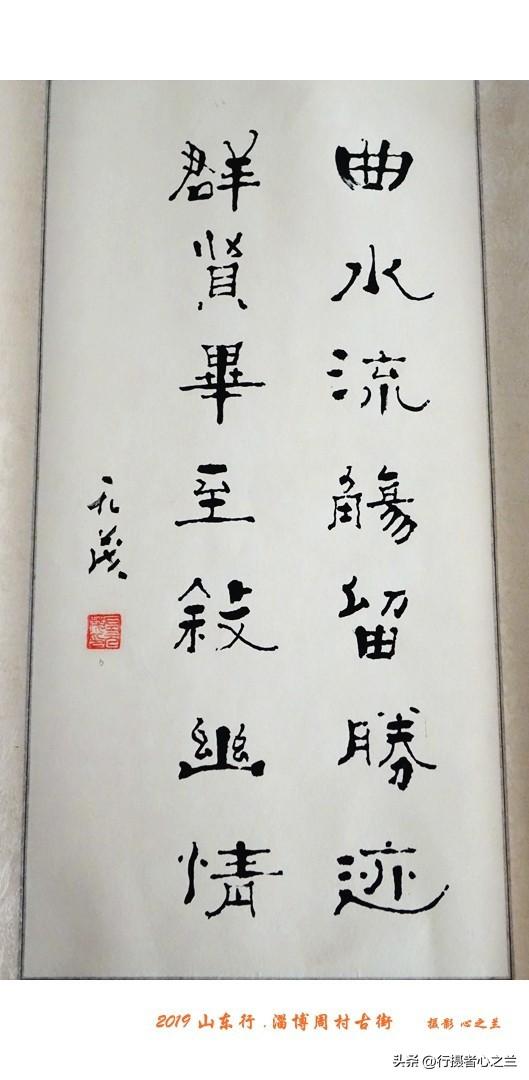 曲水流觴留勝迹
群賢畢至敍幽情
2019 山东行 . 淄博周村古街 摄影 心之兰
头条 @行摄者心之兰